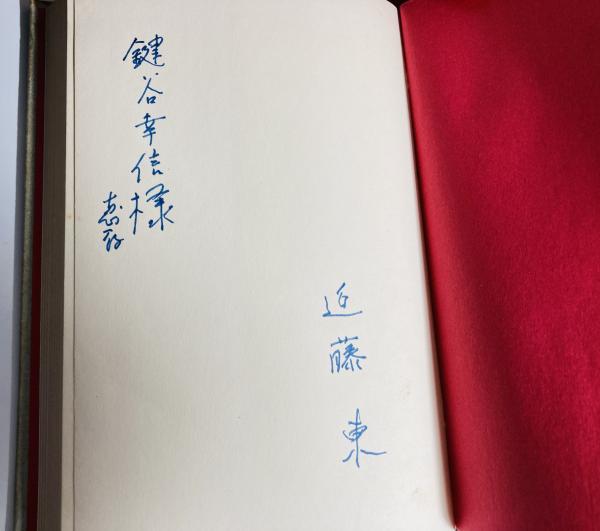 鍵谷幸信様
恵存
近藤東